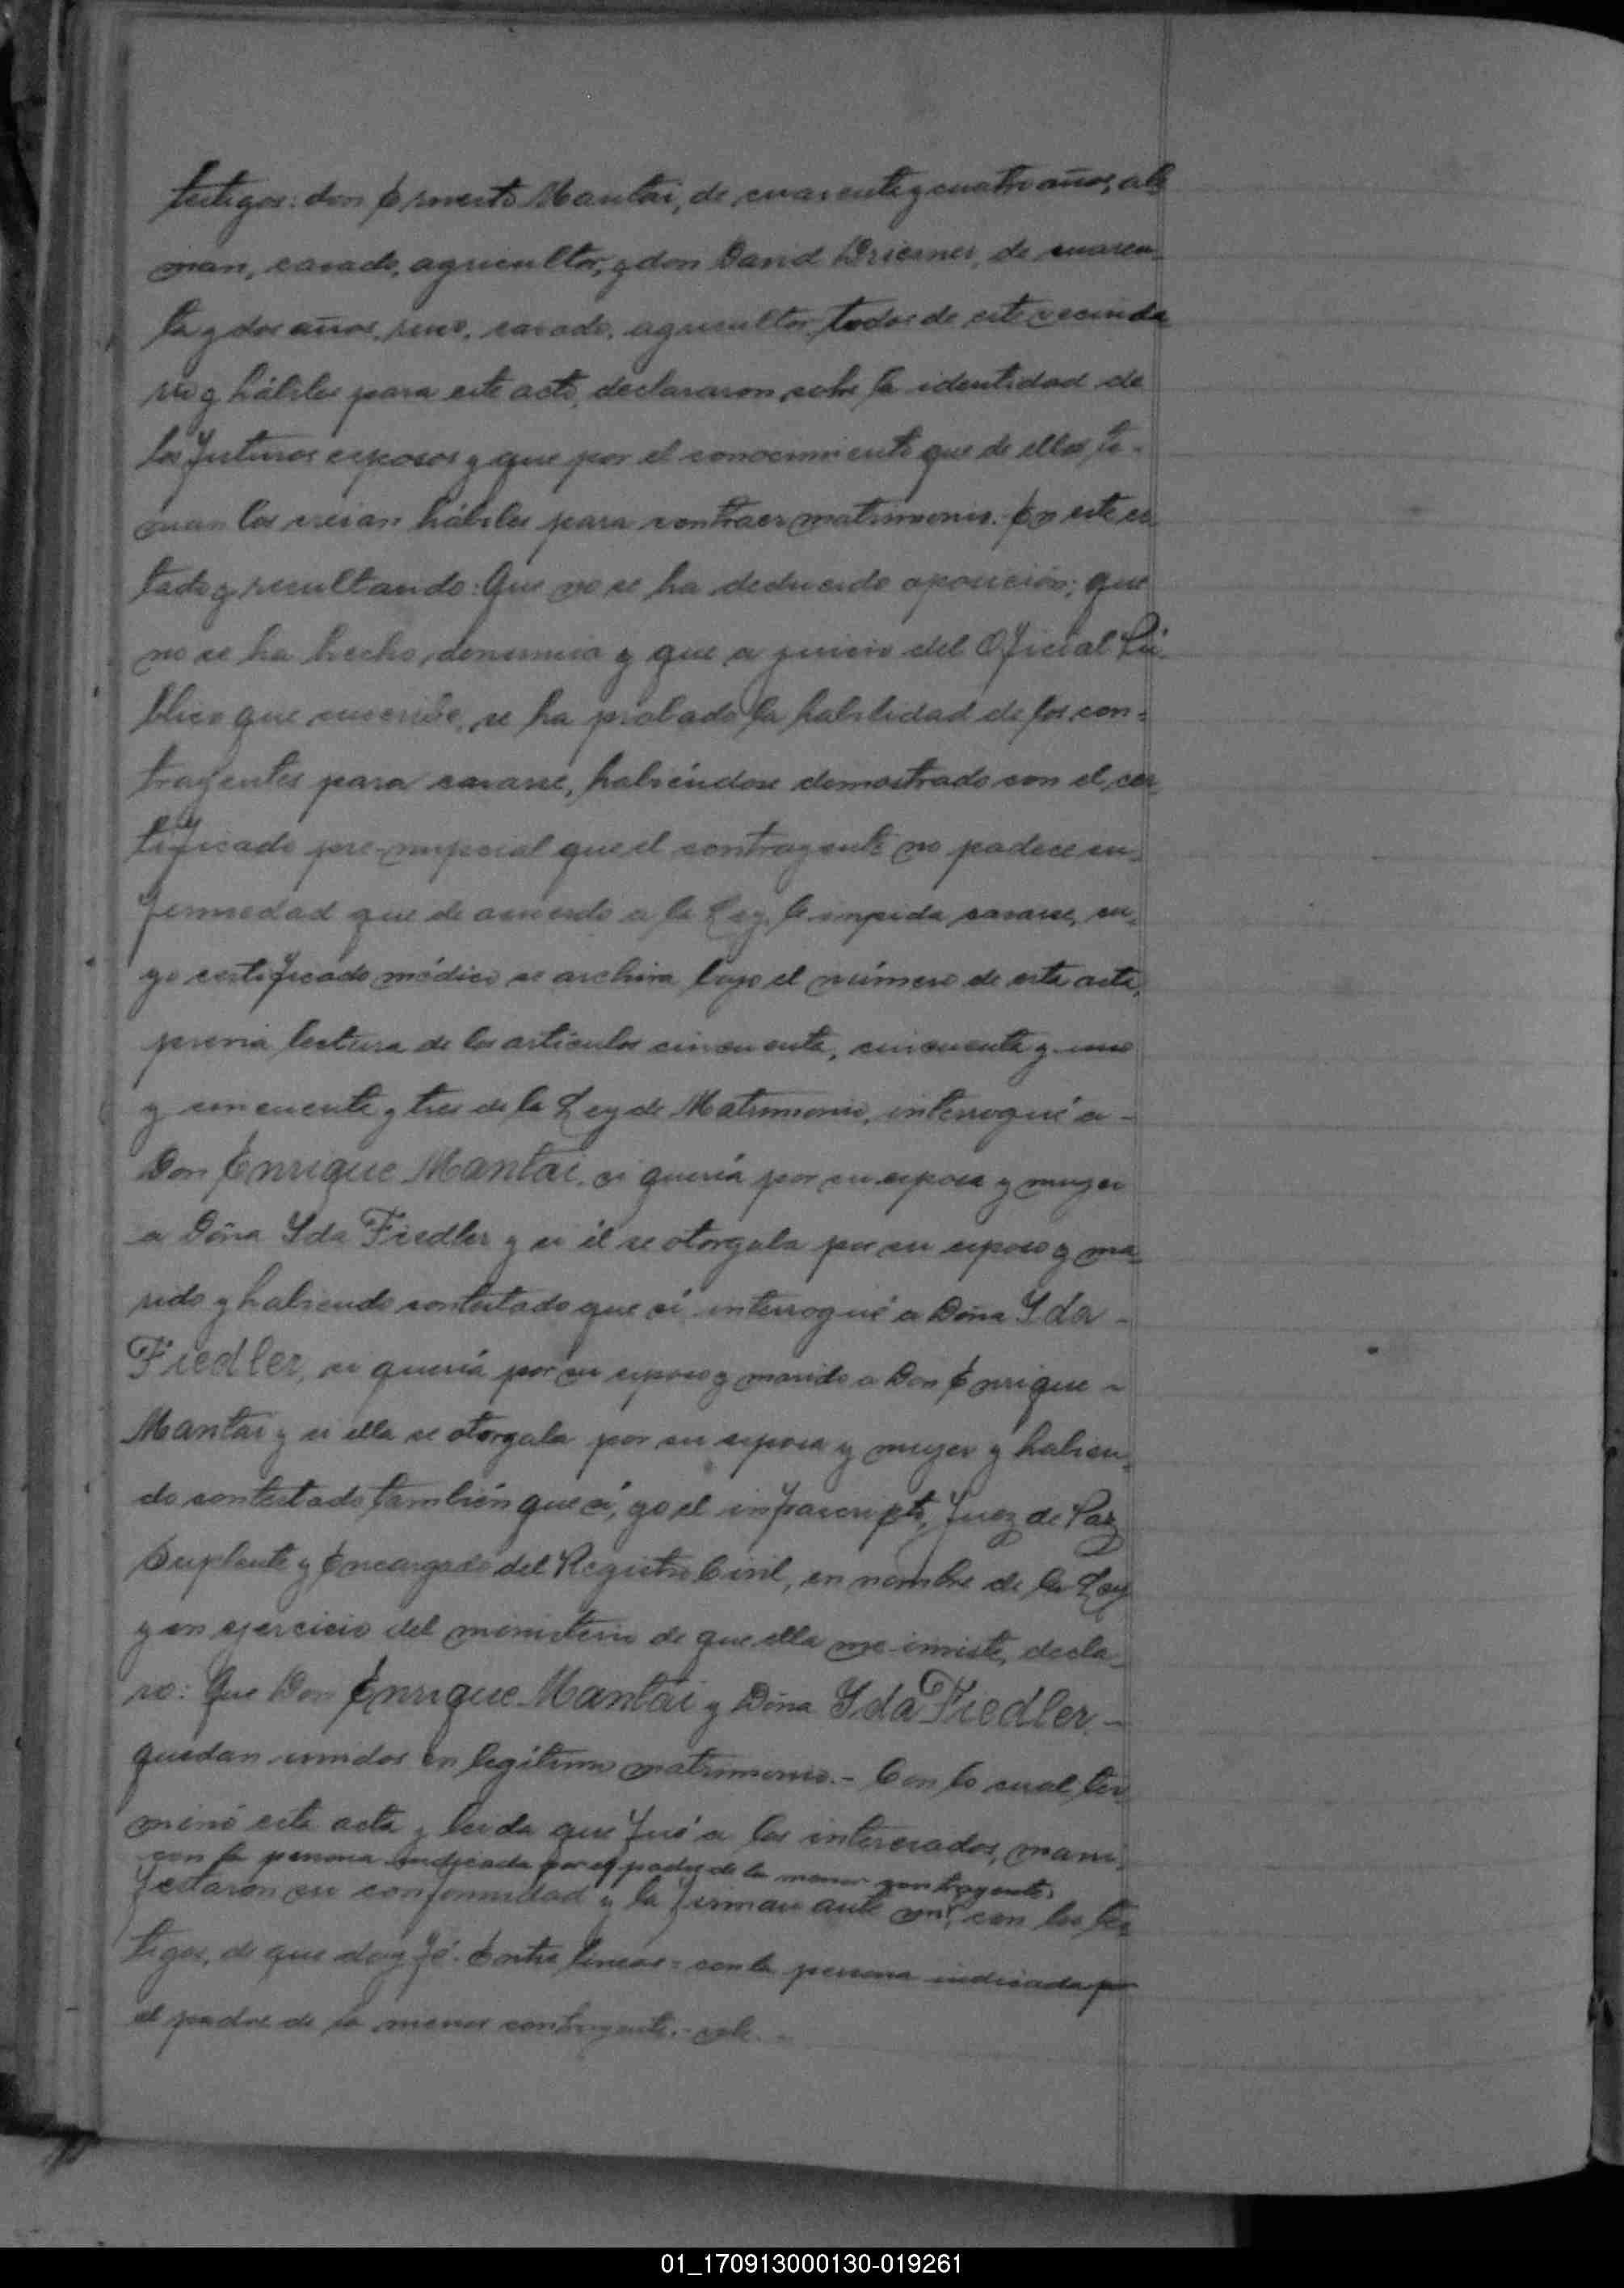 testigos: don Ernesto Mantai, de cuarenta y cuatro años, ale
man, casado, agricultor, y don David Driesner, de cuaren-
ta y dos años, ruso, casado, agricultor, todos de este vecinda
rio y hábiles para este acto, declararon sobre la identidad de
los futuros esposos y que por el conocimiento que de ellos te-
nian los creian hábiles para contraer matrimonio. En este es
tado y resultando: Que no se ha deducido oposición; que
no se ha hecho denuncia y que a juicio del Oficial Pú-
blico que suscribe, se ha probado la habilidad de los con-
trayentes para casarse, habiéndose demostrado con el cer
tificado pre-nupcial que el contrayente no padece en-
fermedad que de acuerdo a la Ley, le impida casarse, cu-
yo certificado médico se archiva bajo el número de esta acta,
previa lectura de los artículos cincuenta, cincuenta y uno
y cincuenta y tres de la Ley de Matrimonio, interrogué a -
Don Enrique Mantai, si quería por su esposa y mujer
a Doña Ida Fiedler y si él se otorgaba por su esposo y ma-
rido y habiendo contestado que sí interrogué a Doña Ida -
Fiedler, si quería por su esposo y marido a Don Enrique -
Mantai y si ella se otorgaba por su esposa y mujer y habien-
do contestado también que sí, yo el infrascripto, Juez de Paz
Suplente y Encargado del Registro Civil, en nombre de la Ley
y en ejercicio del ministerio de que ella me inviste, decla-
ro: Que Don Enrique Mantai y Doña Ida Fiedler -
quedan unidos en legítimo matrimonio.- Con lo cual ter
minó esta acta y leida que fué a los interesados, mani-
con la persona indicada por el padre de la menor contrayente,
festaron su conformidad y la firman ante mí, con los tes
tigos, de que doy fé. Entre lineas = con la persona indicada por
el padre de la menor contrayente.- vale. -
01_170913000130-019261